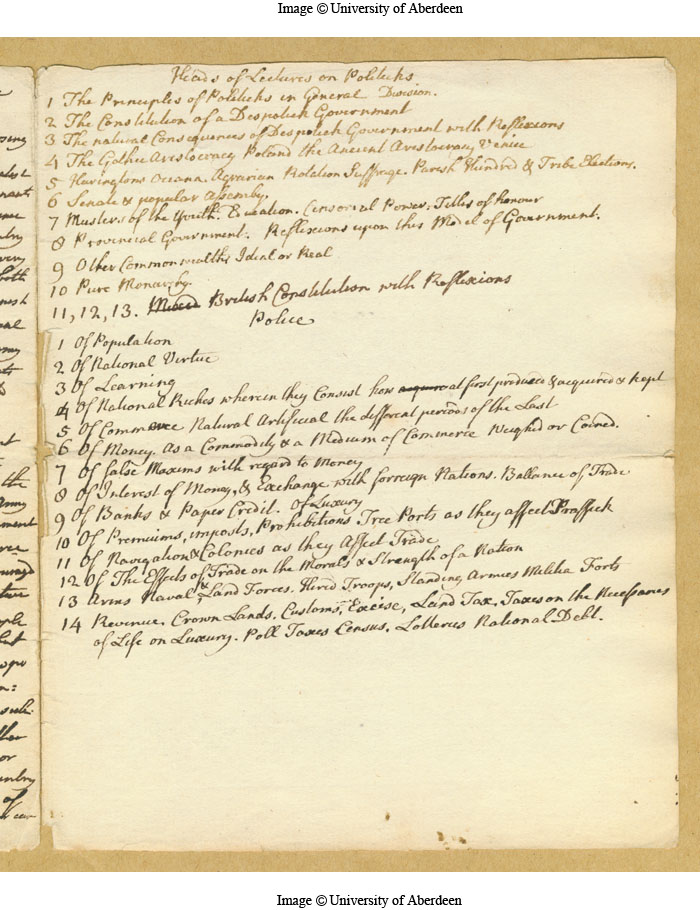 Image © University of Aberdeen
Heads of Lectures on Politicks
1 The Principles of Politicks in General Division.
2 The Constitution of a Despotick Government
3 The natural Consequences of Despotick Government with Reflexions
4 The Gothic Aristocracy Poland the Ancient Aristocracy Venice
5 Haringtons Oceana. Agrarian Rotation Suffrage. Parish Hundred & Tribe Elections.
6 Senate & popular Assembly.
7 Musters of the Youth. Education. Censorial Power. Titles of honour
8 Provincial Government. Reflexions upon this Model of Government.
9 Other Commonwealths Ideal or Real
10 Pure Monarchy.
11, 12, 13. Mixed British Constitution with Reflexions
Police
1 Of Population
2 Of National Virtue
3 Of Learning
4 Of National Riches wherein they Consist how acquire at first produced & acquired & kept
5 Of Commerce Natural Artificial the different periods of the Last
6 Of Money. As a Commodity & a Medium of Commerce Weighd or Coined.
7 Of false Maxims with regard to Money
8 Of Interest of Money, & Exchange with forreign Nations. Ballance of Trade
9 Of Banks & Paper Credit. Of Luxury
10 Of Premiums, imposts, Prohibitions Free Ports as they affect Traffick
11 Of Navigation & Colonies as they Affect Trade
12 Of The Effects of Trade on the Morals & Strength of a Nation
13 Arms Naval & Land Forces. Hired Troops, Standing Armies Militia Forts
14 Revenue. Crown Lands. Customs, Excise, Land Tax, Taxes on the Necessaries
of Life on Luxury. Poll Taxes Census. Lotteries National Debt.
Image © University of Aberdeen